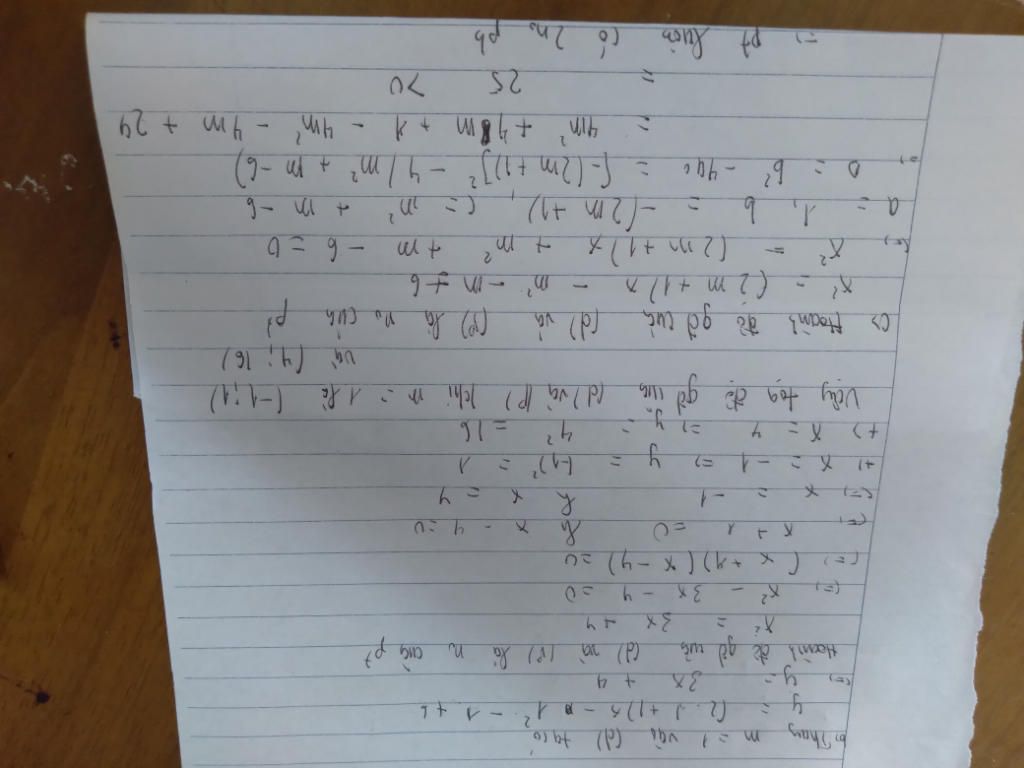 b, Thay m = 1 vài (d) ta có
y = (2.1+1)x - 1² - 1 + 6
(=) y = 3x + 4
Hoành độ gđ của (d) và (P) là n₀ của pt
x² = 3x + 4
(=) x² - 3x - 4 = 0
(=) (x + 1)(x - 4) = 0
(=) x + 1 = 0 h x - 4 = 0
(=) x = -1 h x = 4
+, x = -1 => y = (-1)² = 1
+, x = 4 => y = 4² = 16
Vậy tọa độ gđ của (d) và (P) khi m = 1 là (-1; 1)
và (4; 16)
c, Hoành độ gđ của (d) và (P) là n₀ của pt
x² = (2m + 1)x - m² - m + 6
(=) x² - (2m + 1)x + m² + m - 6 = 0
a = 1, b = -(2m + 1), c = m² + m - 6
=) Δ = b² - 4ac = [-(2m + 1)]² - 4(m² + m - 6)
= 4m² + 4m + 1 - 4m² - 4m + 24
= 25 > 0
=) pt luôn có 2 n₀ pb